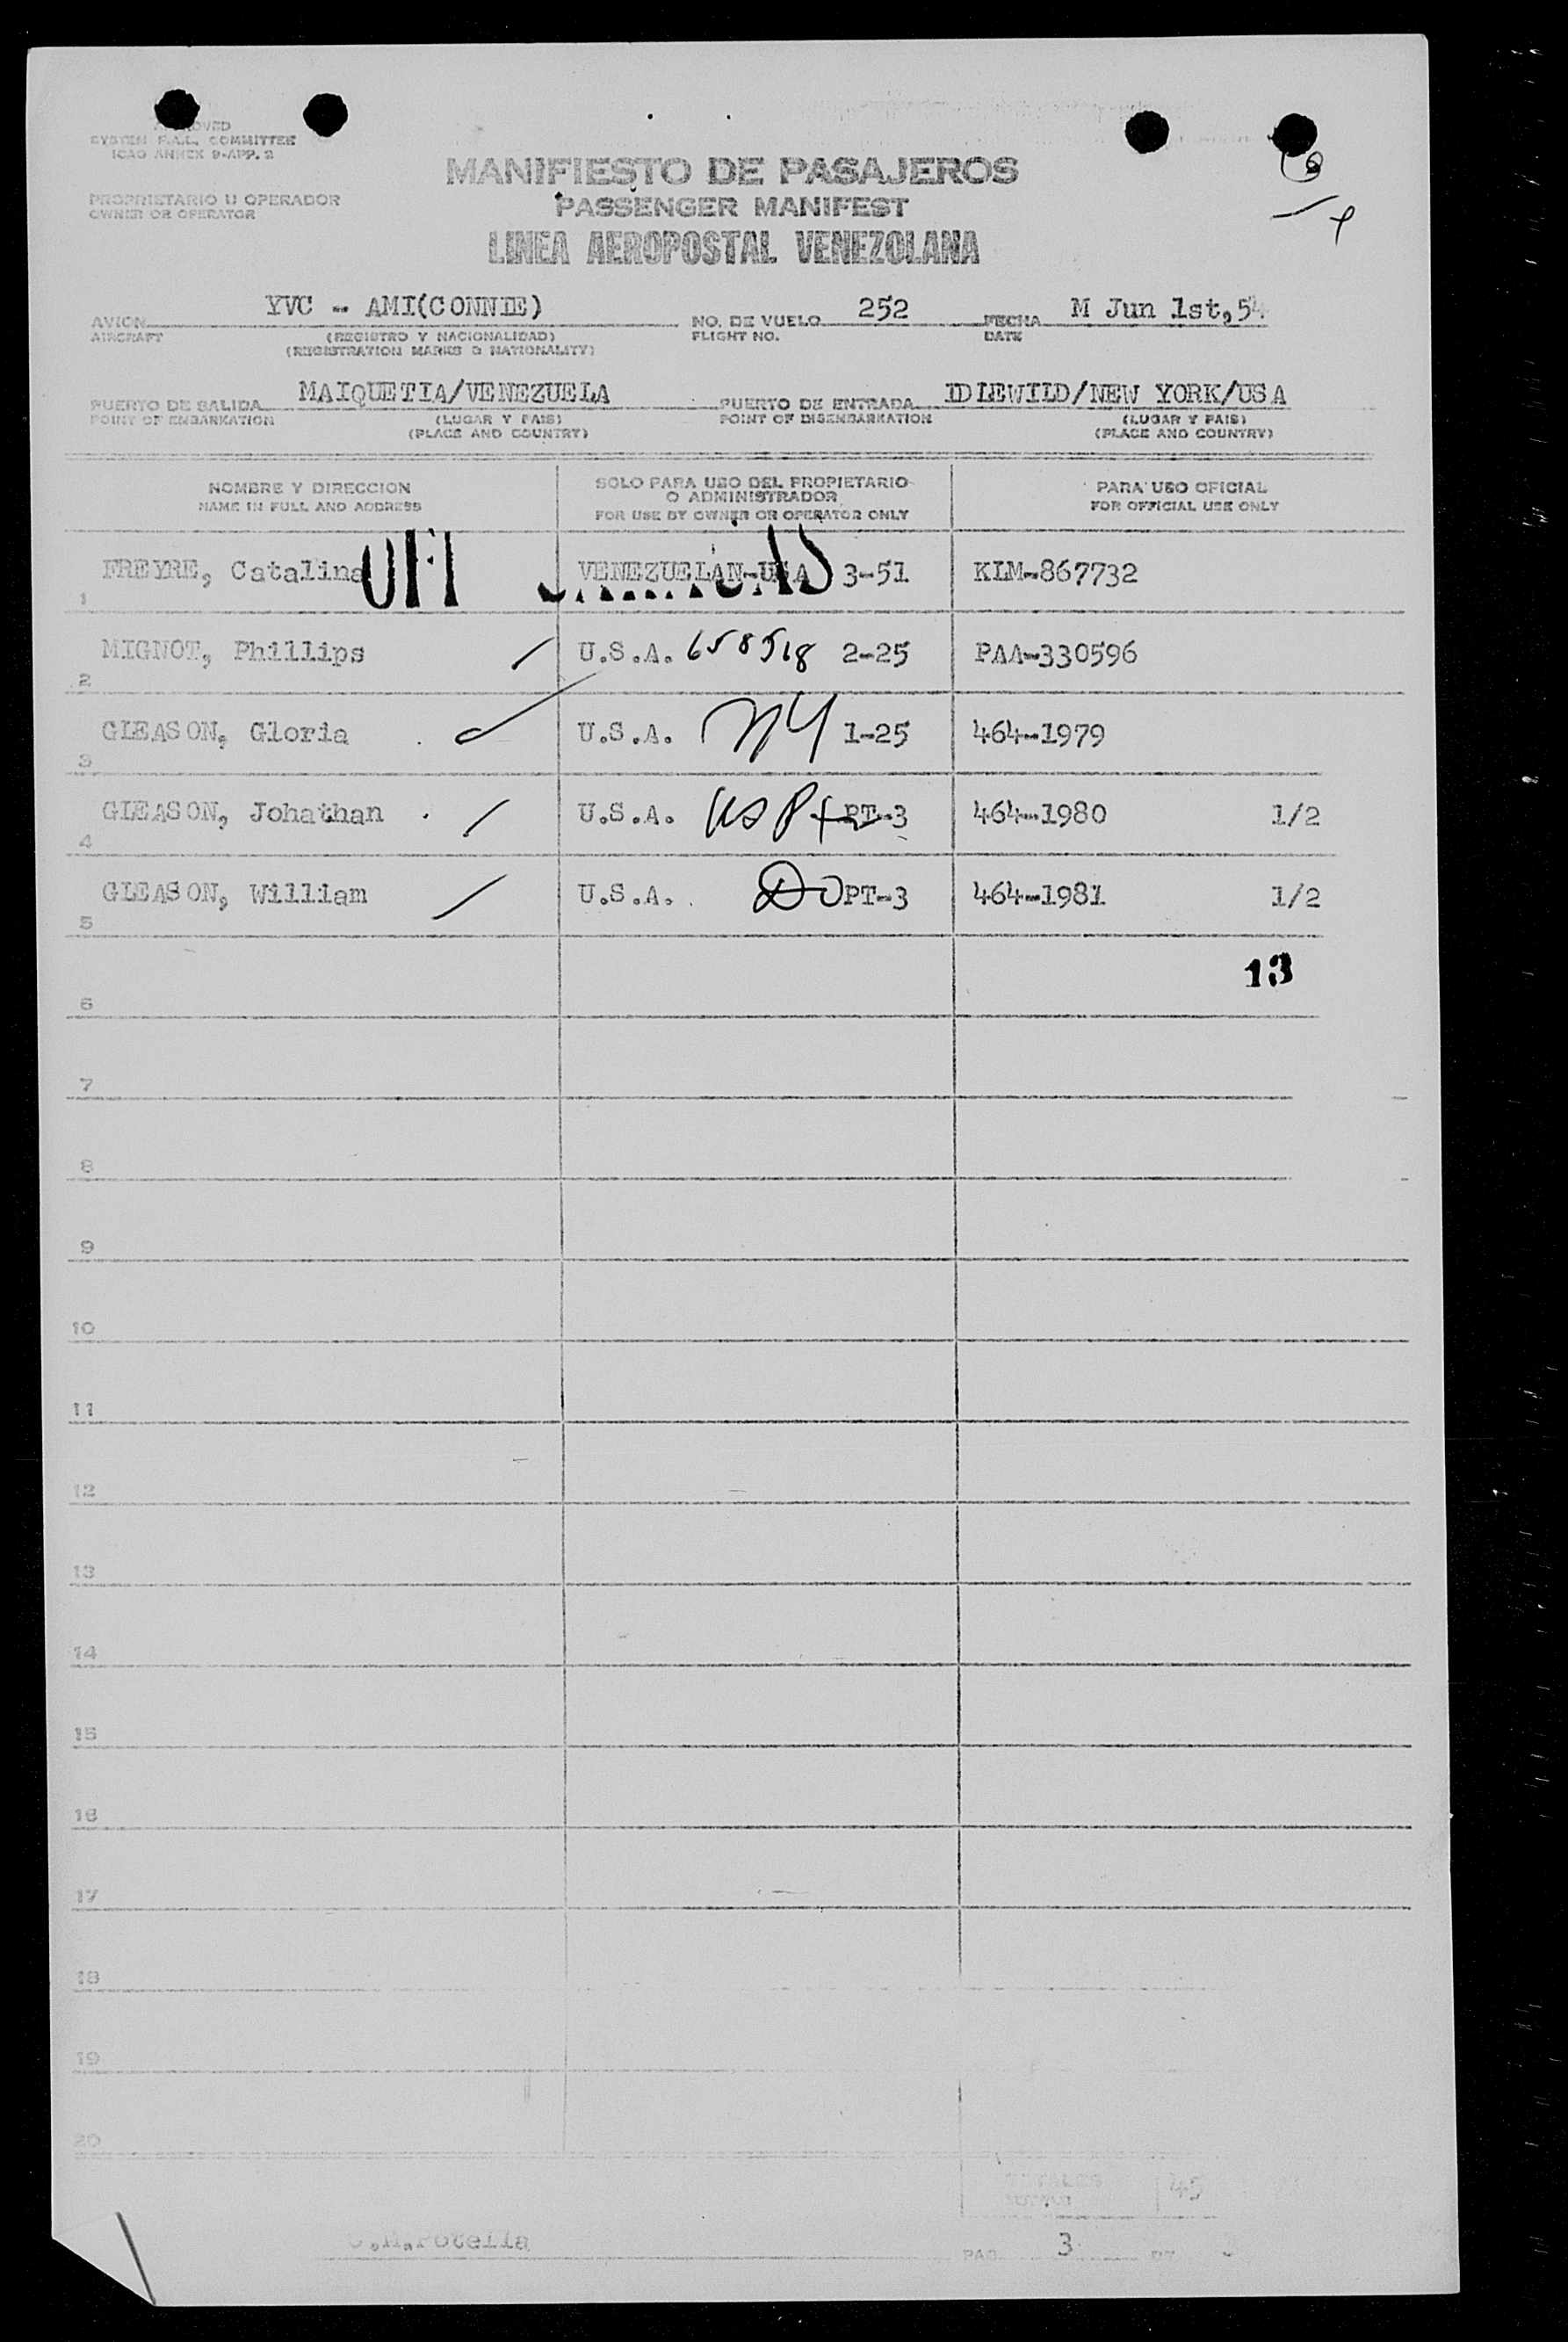 APPROVED
SYSTEM F.A.L. COMMITTEE
ICAO ANNEX 9-APP. 2
MANIFIESTO DE PASAJEROS
PROPRIETARIO U OPERADOR
OWNER OR OPERATOR
PASSENGER MANIFEST
LINEA AEROPOSTAL VENEZOLANA
AVION YVC - AMI(CONNIE) NO. DE VUELO 252 FECHA M Jun 1st,54
AIRCRAFT (REGISTRO Y NACIONALIDAD) FLIGHT NO. DATE
(REGISTRATION MARKS & NATIONALITY)
PUERTO DE SALIDA MAIQUETIA/VENEZUELA PUERTO DE ENTRADA IDLEWILD/NEW YORK/USA
POINT OF EMBARKATION (LUGAR Y PAIS) POINT OF DISEMBARKATION (LUGAR Y PAIS)
(PLACE AND COUNTRY) (PLACE AND COUNTRY)
NOMBRE Y DIRECCION
NAME IN FULL AND ADDRESS
SOLO PARA USO DEL PROPIETARIO
O ADMINISTRADOR
FOR USE BY OWNER OR OPERATOR ONLY
PARA USO OFICIAL
FOR OFFICIAL USE ONLY
1 FREYRE, Catalina VENEZUELAN-USA 3-51 KLM-867732
2 MIGNOT, Phillips U.S.A. 658518 2-25 PAA-330596
3 GLEASON, Gloria U.S.A. NY 1-25 464-1979
4 GLEASON, Johathan U.S.A. USP PT-3 464-1980 1/2
5 GLEASON, William U.S.A. DO PT-3 464-1981 1/2
13
6
7
8
9
10
11
12
13
14
15
16
17
18
19
20
TOTALES 45
PAG. 3